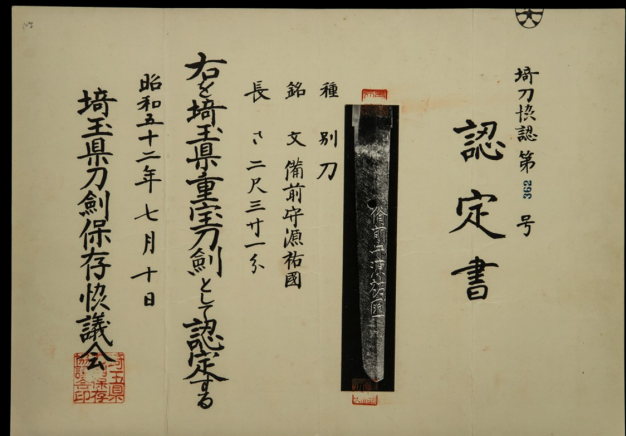 埼刀協認第362号
認定書
備前守源祐國
種別刀
銘文備前守源祐國
長さ二尺三寸一分
右を埼玉県重宝刀劍として認定する
昭和五十二年七月十日
埼玉県刀劍保存協議会